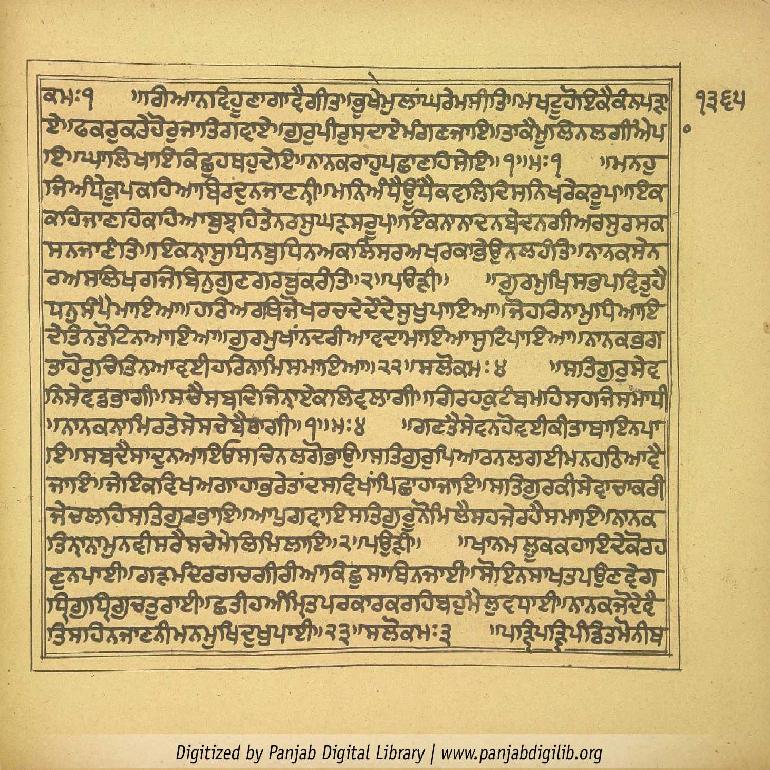 ੧੩੬੫
ਕਮਃ੧ ॥ਗਿਆਨਵਿਹੂਣਾਗਾਵੈਗੀਤ॥ਭੁਖੇਮੁਲਾਂਘਰੇਮਸੀਤਿ॥ਮਖਟੂਹੋਇਕੈਕੰਨਪੜਾ
ਏ॥ਫਕਰੁਕਰੇਹੋਰੁਜਾਤਿਗਵਾਏ॥ਗੁਰੁਪੀਰੁਸਦਾਏਮੰਗਣਜਾਇ॥ਤਾਕੈਮੂਲਿਨਲਗੀਐਪ
ਾਇ॥ਘਾਲਿਖਾਇਕਿਛੁਹਥਹੁਦੇਇ॥ਨਾਨਕਰਾਹੁਪਛਾਣਹਿਸੇਇ॥੧॥ਮਃ੧ ॥ਮਨਹੁ
ਜਿਅੰਧੇਕੂਪਕਹਿਆਬਿਰਦੁਨਜਾਣਨੀ॥ਮਨਿਅੰਧੈਊਂਧੈਕਵਲਿਦਿਸਨਿਖਰੇਕਰੂਪ॥ਇਕ
ਕਹਿਜਾਣਹਿਕਹਿਆਬੁਝਹਿਤੇਨਰਸੁਘੜਸਰੂਪ॥ਇਕਨਾਨਾਦਨਬੇਦਨਗੀਅਰਸੁਰਸਕ
ਸਨਜਾਣੰਤਿ॥ਇਕਨਾਸੁਧਿਨਬੁਧਿਨਅਕਲਿਸਰਅਖਰਕਾਭੇਉਨਲਹੰਤਿ॥ਨਾਨਕਸੇਨ
ਰਅਸਲਿਖਰਜਿਬਿਨੁਗੁਣਗਰਬੁਕਰੰਤਿ॥੨॥ਪਉੜੀ॥ ॥ਗੁਰਮੁਖਿਸਭਪਵਿਤੁਹੈ
ਧਨੁਸੰਪੈਮਾਇਆ॥ਹਰਿਅਰਥਿਜੋਖਰਚਦੇਦੇਂਦੇਸੁਖੁਪਾਇਆ॥ਜੋਹਰਿਨਾਮੁਧਿਆਇ
ਦੇਤਿਨਤੋਟਿਨਆਇਆ॥ਗੁਰਮੁਖਾਂਨਦਰੀਆਵਦਾਮਾਇਆਸੁਟਿਪਾਇਆ॥ਨਾਨਕਭਗ
ਤਾਂਹੋਰੁਚਿਤਿਨਆਵਈਹਰਿਨਾਮਿਸਮਾਇਆ॥੨੨॥ਸਲੋਕਮਃ੪ ॥ਸਤਿਗੁਰੁਸੇਵ
ਨਿਸੇਵਡਭਾਗੀ॥ਸਚੈਸਬਦਿਜਿਨਾਏਕਲਿਵਲਾਗੀ॥ਗਿਰਹਕੁਟੰਬਮਹਿਸਹਜਿਸਮਾਧੀ
॥ਨਾਨਕਨਾਮਿਰਤੇਸੇਸਚੇਬੈਰਾਗੀ॥੧॥ਮਃ੪ ॥ਗਣਤੈਸੇਵਨਹੋਵਈਕੀਤਾਥਾਇਨਪਾ
ਇ॥ਸਬਦੈਸਾਦੁਨਆਇਓਸਚਿਨਲਗੋਭਾਉ॥ਸਤਿਗੁਰੁਪਿਆਰਾਨਲਗਈਮਨਹਠਿਆਵੈ
ਜਾਇ॥ਜੇਇਕਵਿਖਅਗਾਹਾਭਰੇਤਾਂਦਸਵਿਖਾਂਪਿਛਾਹਾਜਾਇ॥ਸਤਿਗੁਰਕੀਸੇਵਾਚਾਕਰੀ
ਜੇਚਲਹਿਸਤਿਗੁਰਭਾਇ॥ਆਪੁਗਵਾਇਸਤਿਗੁਰੂਨੋਮਿਲੈਸਹਜੇਰਹੈਸਮਾਇ॥ਨਾਨਕ
ਤਿਨਾਨਾਮੁਨਵੀਸਰੈਸਚੇਮੇਲਿਮਿਲਾਇ॥੨॥ਪਉੜੀ॥ ॥ਖਾਨਮਲੂਕਕਹਾਇਦੇਕੋਰਹ
ਣੁਨਪਾਈ॥ਗੜਮੰਦਿਰਗਚਗੀਰੀਆਕਿਛੁਸਾਥਿਨਜਾਈ॥ਸੋਇਨਸਾਖਤਪਉਣਵੇਗ
ਧ੍ਰਿਗੁਧ੍ਰਿਗੁਚਤੁਰਾਈ॥ਛਤੀਹਅੰਮ੍ਰਿਤਪਰਕਾਰਕਰਹਿਬਹੁਮੈਲੁਵਧਾਈ॥ਨਾਨਕਜੋਦੇਵੈ
ਤਿਸਹਿਨਜਾਣਨੀਮਨਮੁਖਿਦੁਖੁਪਾਈ॥੨੩॥ਸਲੋਕਮਃ੩ ॥ਪੜ੍ਹਿਪੜ੍ਹਿਪੰਡਿਤਮੋਨੀਥ
Digitized by Panjab Digital Library | www.panjabdigilib.org